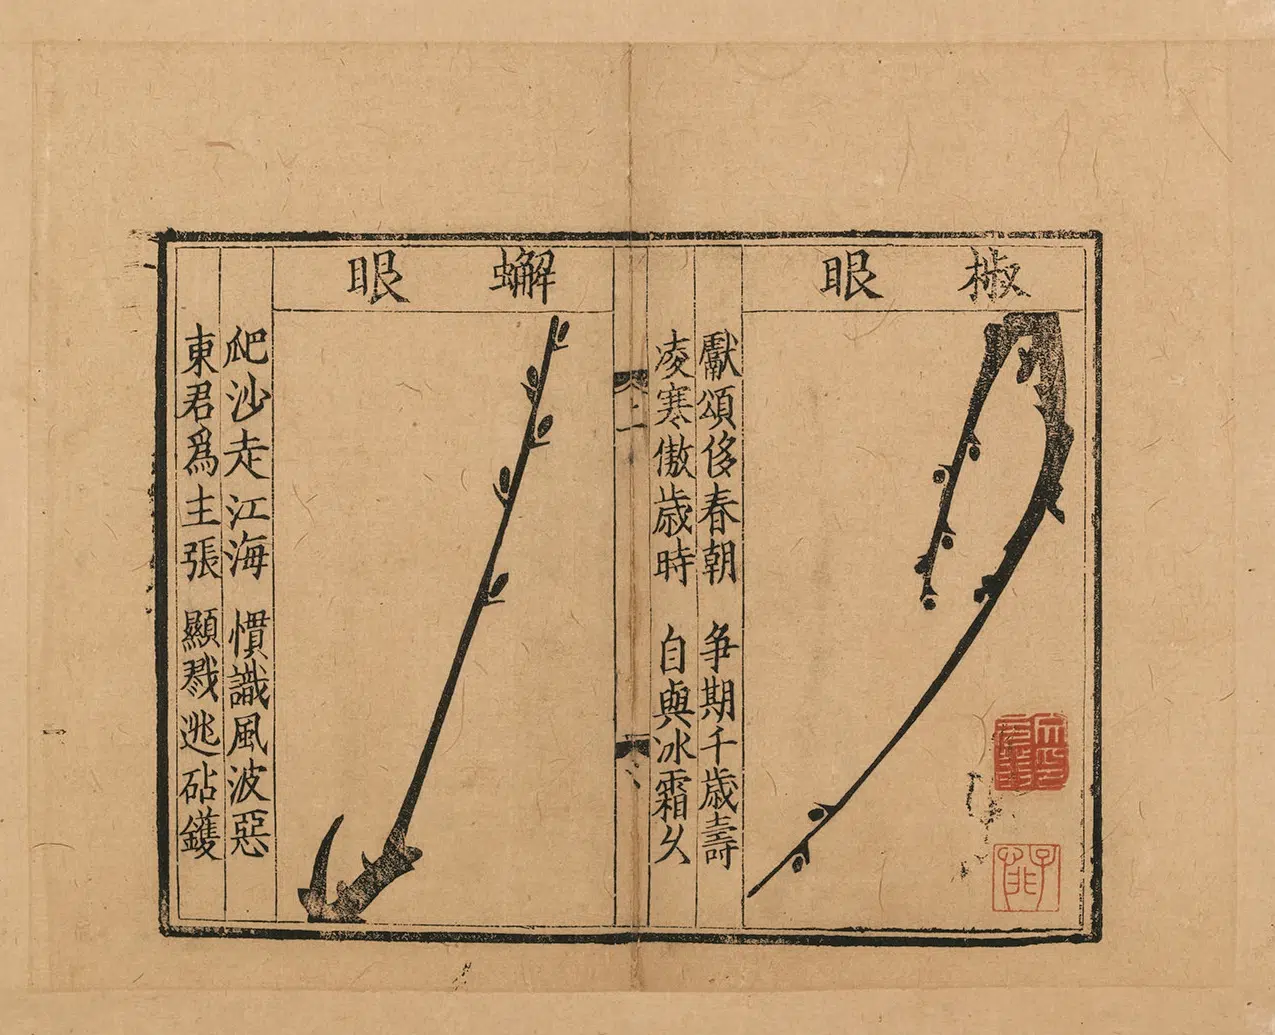 椒眼
獻頌侈春朝 争期千歳壽
凌寒傲歳時 自與冰霜久
上
蠏眼
爬沙走江海 慣識風波惡
東君爲主張 顯戮逃砧鑊